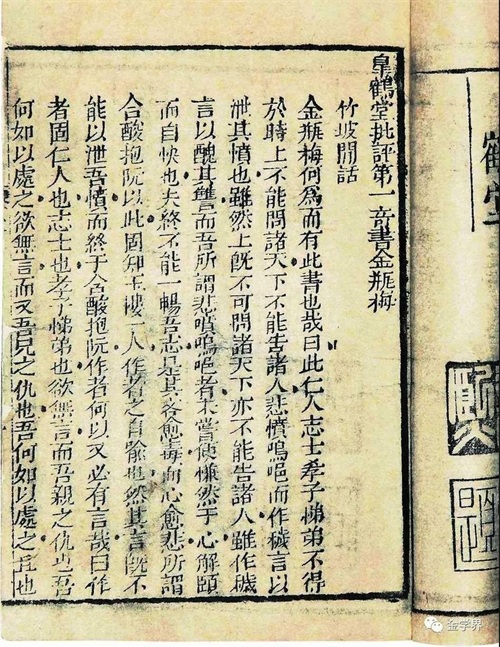 皐鶴堂批評第一奇書金瓶梅
竹坡閒話
金瓶梅何為而有此書也哉曰此仁人志士孝子悌弟不得
於時上不能問諸天下不能告諸人悲憤嗚唈而作穢言以
泄其憤也雖然上既不可問諸天下亦不能告諸人雖作穢
言以醜其讐而吾所謂悲憤嗚唈者未嘗便慊然于心解頤
而自快也夫終不能一暢吾志是其言愈毒而心愈悲所謂
含酸抱阮以此固知玉樓一人作者之自喻也然其言既不
能以泄吾憤而終于含酸抱阮作者何以又必有言哉曰作
者固仁人也志士也孝子悌弟也欲無言而吾親之仇也吾
何如以處之欲無言而又吾兄之仇也吾何如以處之且也
金学界